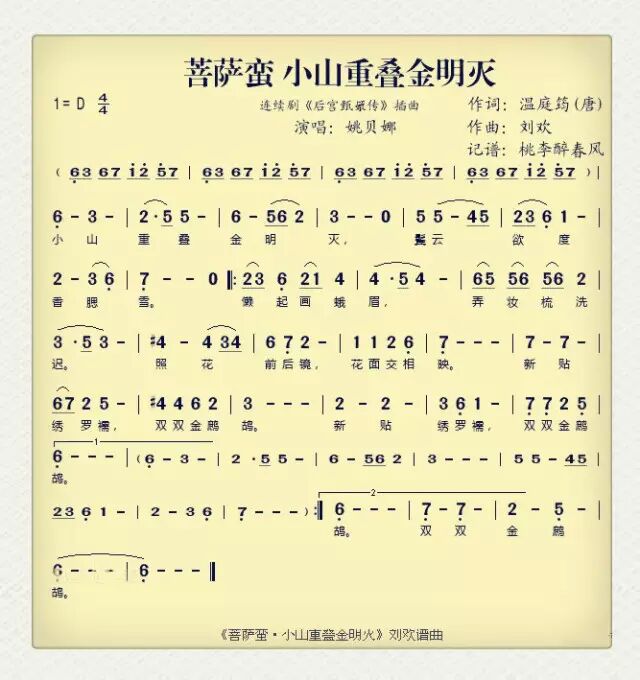 菩萨蛮 小山重叠金明灭
1= D 4/4
连续剧《后宫甄嬛传》插曲
作词：温庭筠(唐)
演唱：姚贝娜
作曲：刘欢
记谱：桃李醉春风
( 63 67 12 57 | 63 67 12 57 | 63 67 12 57 | 63 67 12 57 ) |
6 - 3 - | 2·5 5 - | 6 - 56 2 | 3 - - 0 | 5 5 - 45 | 23 6 1 - |
小 山 重 叠 金 明 灭， 鬓云 欲 度
2 - 3 6 | 7 - - 0 |: 23 6 21 4 | 4 ·5 4 - | 65 56 56 2 |
香 腮 雪。 懒 起 画 蛾 眉， 弄 妆 梳 洗
3 ·5 3 - | #4 - 4 34 | 6 7 2 - | 1 1 2 6 | 7 - - - | 7 - 7 - |
迟。 照 花 前后镜， 花面交相 映。 新 贴
67 2 5 - | #4 4 6 2 | 3 - - - | 2 - 2 - | 3 6 1 - | 7 7 2 5 |
绣 罗 襦， 双双金鹧 鸪。 新 贴 绣罗襦， 双双金鹧
1
6 - - - | ( 6 - 3 - | 2 ·5 5 - | 6 - 56 2 | 3 - - - | 5 5 - 45 |
鸪。
2
23 6 1 - | 2 - 3 6 | 7 - - - ) :| 6 - - - | 7 - 7 - | 2 - 5 - |
鸪。 双 双 金 鹧
6 - - - | 6 - - - ‖
鸪。
《菩萨蛮·小山重叠金明火》刘欢谱曲